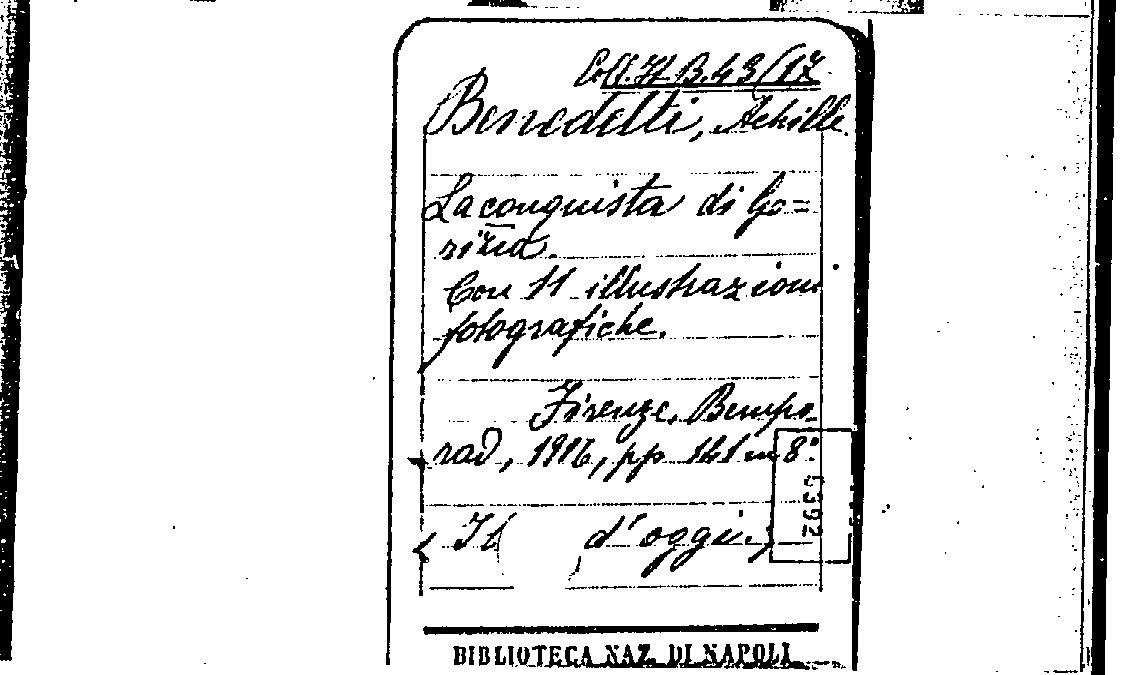 Coll. It. B. 43/17
Benedetti, Achille
La conquista di Go=
rizia.
Con 11 illustrazioni
fotografiche.
Firenze, Bempo-
rad, 1916, pp 141 in 8º
6392
« Il d'oggi. »
BIBLIOTECA NAZ. DI NAPOLI